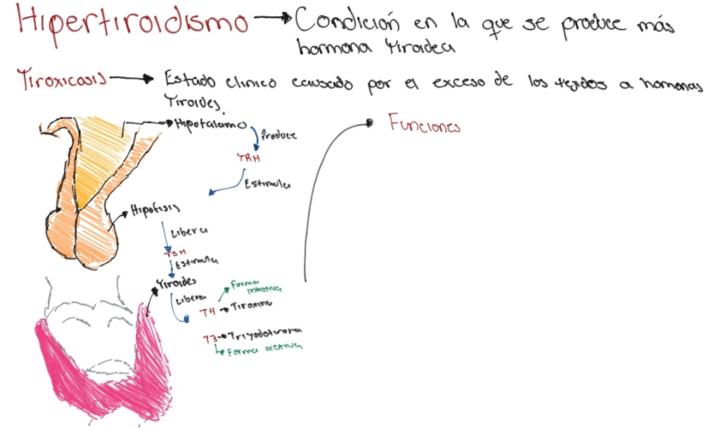 Hipertiroidismo → Condición en la que se produce más
hormona Tiroidea
Tiroxicosis → Estado clinico causado por el exceso de los tejidos a hormonas
Tiroides.
Hipotalamo
Produce
TRH
Estimula
Hipofisis
Libera
TSH
Estimula
Tiroides
Libera
Forma
inactiva
T4 → Tiroxina
T3 → Triyodotirona
Forma activa
Funciones